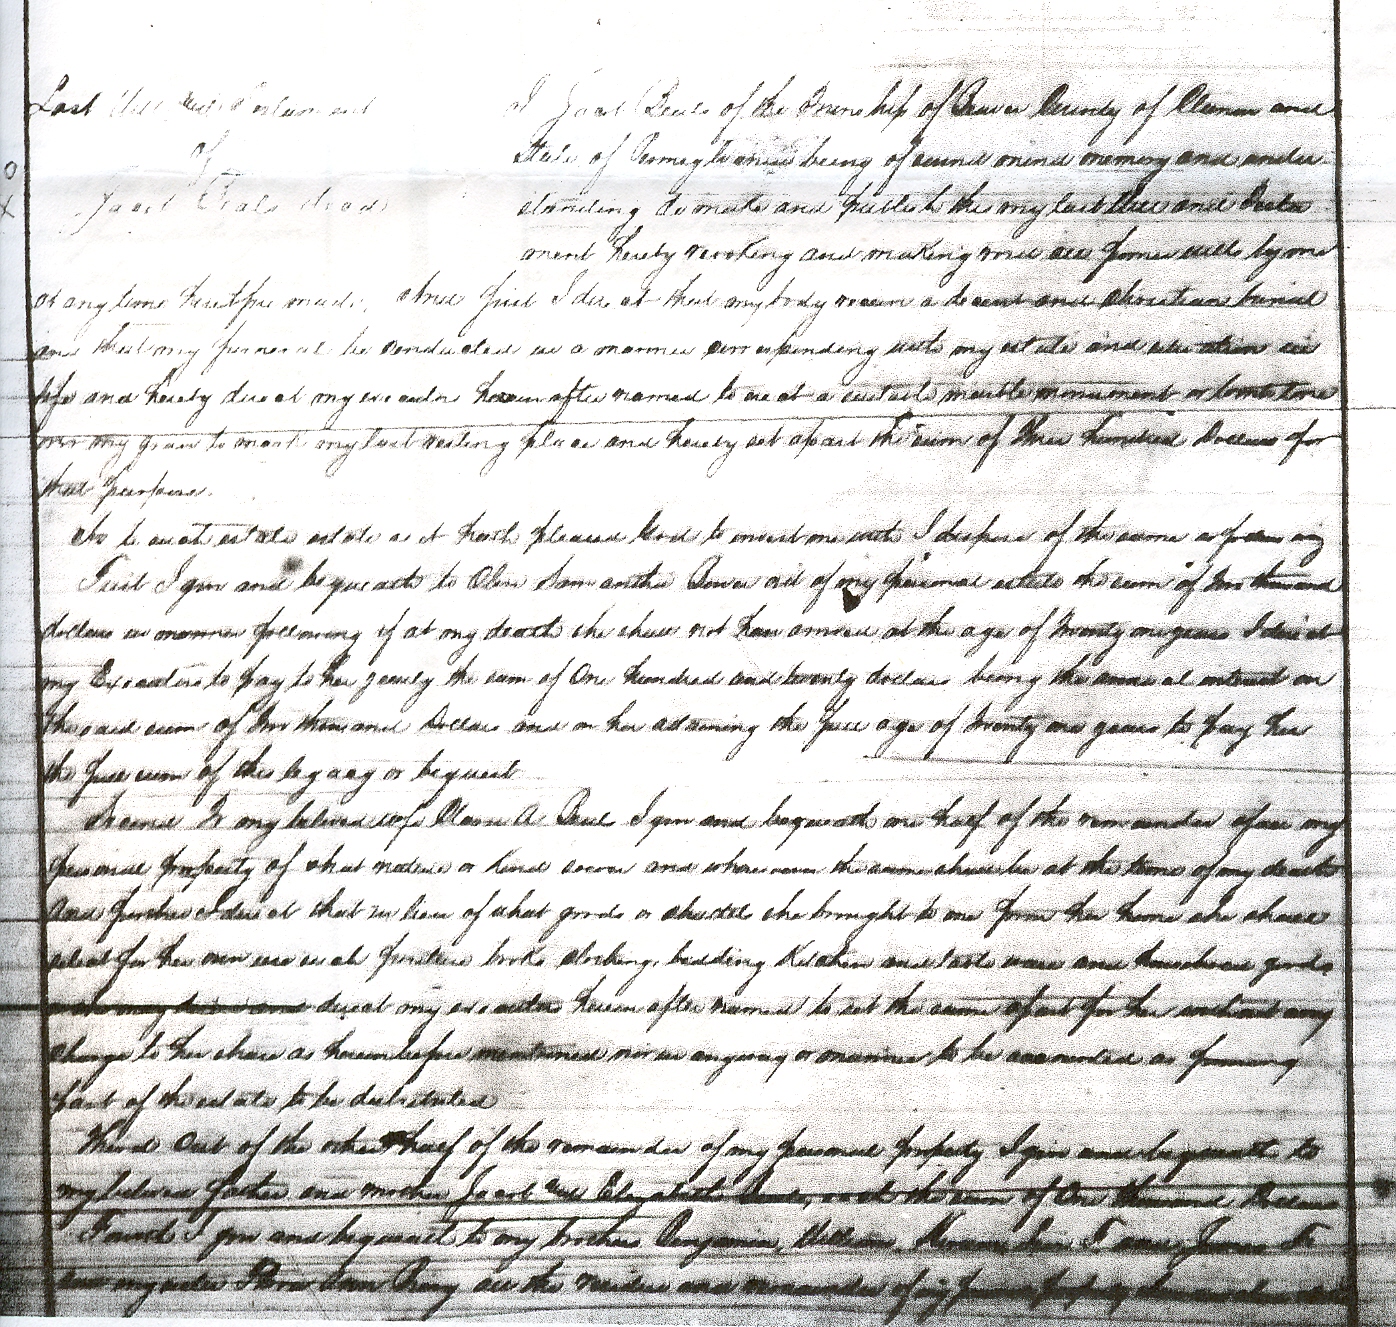 Last Will and Testament
of
Jacob Beals decd
I Jacob Beals of the Township of Beaver County of Clarion and
State of Pennsylvania being of sound mind memory and under
standing do make and publish this my last Will and Testa
ment hereby revoking and making void all former wills by me
at any time heretofore made. And first I direct that my body receive a decent and Christian burial
and that my funeral be conducted in a manner corresponding with my estate and situation in
life and hereby direct my executors herein after named to erect a suitable marble monument or tombstone
over my grave to mark my last resting place and hereby set apart the sum of Three hundred Dollars for
that purpose.
As to such estate estate as it hath pleased God to invest me with I dispose of the same as follows viz
First I give and bequeath to Samantha out of my personal estate the sum of Two thousand
dollars in manner following if at my death she shall not have arrived at the age of Twenty one years I direct
my Executors to pay to her yearly the sum of One hundred and twenty dollars being the annual interest on
the said sum of Two thousand Dollars and on her attaining the full age of Twenty one years to pay her
the full sum of this legacy or bequest
Second To my beloved wife A I give and bequeath one half of the remainder of all my
personal property of what nature or kind soever and wheresoever the same shall be at the time of my death
And further I direct that in lieu of what goods or chattels she brought to me from her home she shall
select for her own use such furniture books clothing, bedding Kitchen and table ware and household goods
direct my executors herein after named to set the same apart for her without any
charge to her share as herein before mentioned nor in any way or manner to be accounted as forming
part of the estate to be distributed
Third Out of the other half of the remainder of my personal property I give and bequeath to
my beloved father and mother Jacob and Elizabeth the sum of One thousand Dollars
Fourth I give and bequeath to my brothers Benjamin, William, James
and my sister all the residue and remainder of my personal property